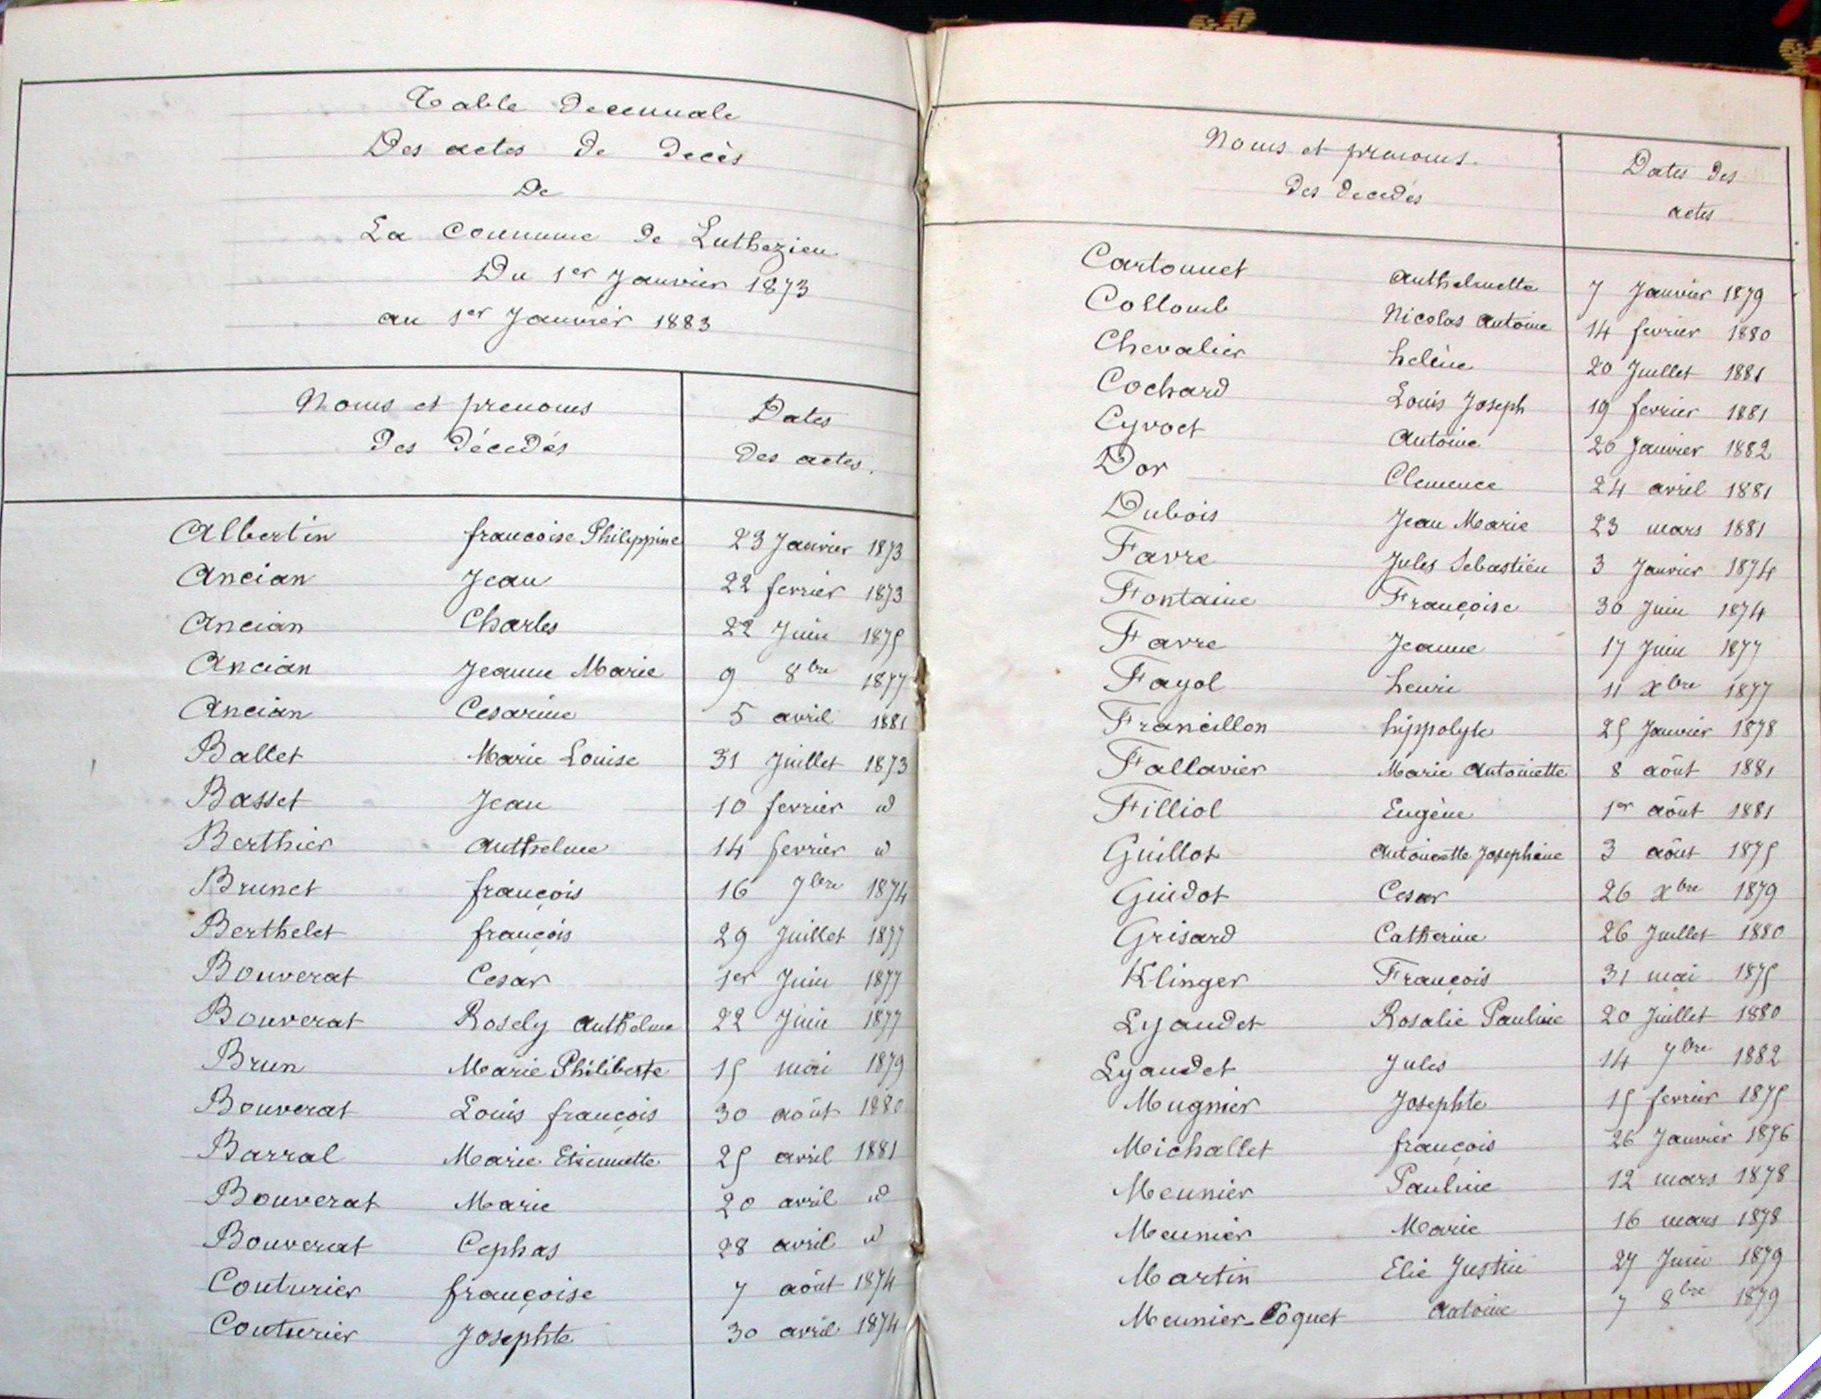 Table decennale
Des actes de decès
De
La commune de Luthezieu
Du 1er Janvier 1873
au 1er Janvier 1883
Noms et prenoms
Des Décedés
Dates
des actes.
Albertin francoise Philippine 23 Janvier 1873
Ancian Jean 22 fevrier 1873
Ancian Charles 22 Juin 1875
Ancian Jeanne Marie 9 8bre 1877
Ancian Cesarine 5 avril 1881
Ballet Marie Louise 31 Juillet 1873
Basset Jean 10 fevrier id
Berthier Anthelme 14 fevrier id
Brunet françois 16 7bre 1874
Berthelet françois 29 Juillet 1877
Bouverat Cesar 1er Juin 1877
Bouverat Rosely Anthelme 22 Juin 1877
Brun Marie Philiberte 15 mai 1879
Bouverat Louis françois 30 août 1880
Barral Marie Etiennette 25 avril 1881
Bouverat Marie 20 avril id
Bouverat Cephas 28 avril id
Couturier françoise 7 août 1874
Couturier Josephte 30 avril 1874
Noms et prenoms.
des decedés
Dates des
actes
Cartonnet Anthelmette 7 Janvier 1879
Collomb Nicolas Antoine 14 fevrier 1880
Chevalier helène 20 Juillet 1881
Cochard Louis Joseph 19 fevrier 1881
Cyvoct Antoine 20 Janvier 1882
Dor Clemence 24 avril 1881
Dubois Jean Marie 23 mars 1881
Favre Jules Sebastien 3 Janvier 1874
Fontaine Françoise 30 Juin 1874
Favre Jeanne 17 Juin 1877
Fayol henri 11 xbre 1877
Francillon hippolyte 25 Janvier 1878
Fallavier Marie Antoinette 8 août 1881
Filliol Eugène 1er août 1881
Guillot Antoinette Josephine 3 août 1875
Guidot Cesar 26 xbre 1879
Grisard Catherine 26 Juillet 1880
Klinger François 31 mai 1875
Lyaudet Rosalie Pauline 20 Juillet 1880
Lyaudet Jules 14 7bre 1882
Mugnier Josephte 15 fevrier 1875
Michallet françois 26 Janvier 1876
Meunier Pauline 12 mars 1878
Meunier Marie 16 mars 1878
Martin Elie Justin 27 Juin 1879
Meunier-Coquet Antoine 7 8bre 1879